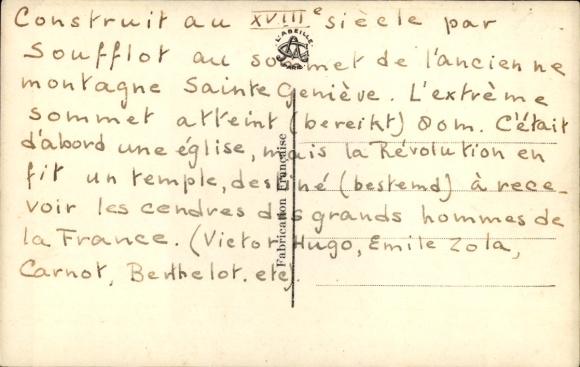 Construit au XVIIIe siècle par
Soufflot au sommet de l'ancienne
montagne Sainte Geniève. L'extrême
sommet atteint (bereikt) 80m. C'était
d'abord une église, mais la Révolution en
fit un temple, destiné (bestemd) à rece-
voir les cendres des grands hommes de
la France. (Victor Hugo, Emile Zola,
Carnot, Berthelot. etc).
L'ABEILLE
PARIS
Fabrication Française